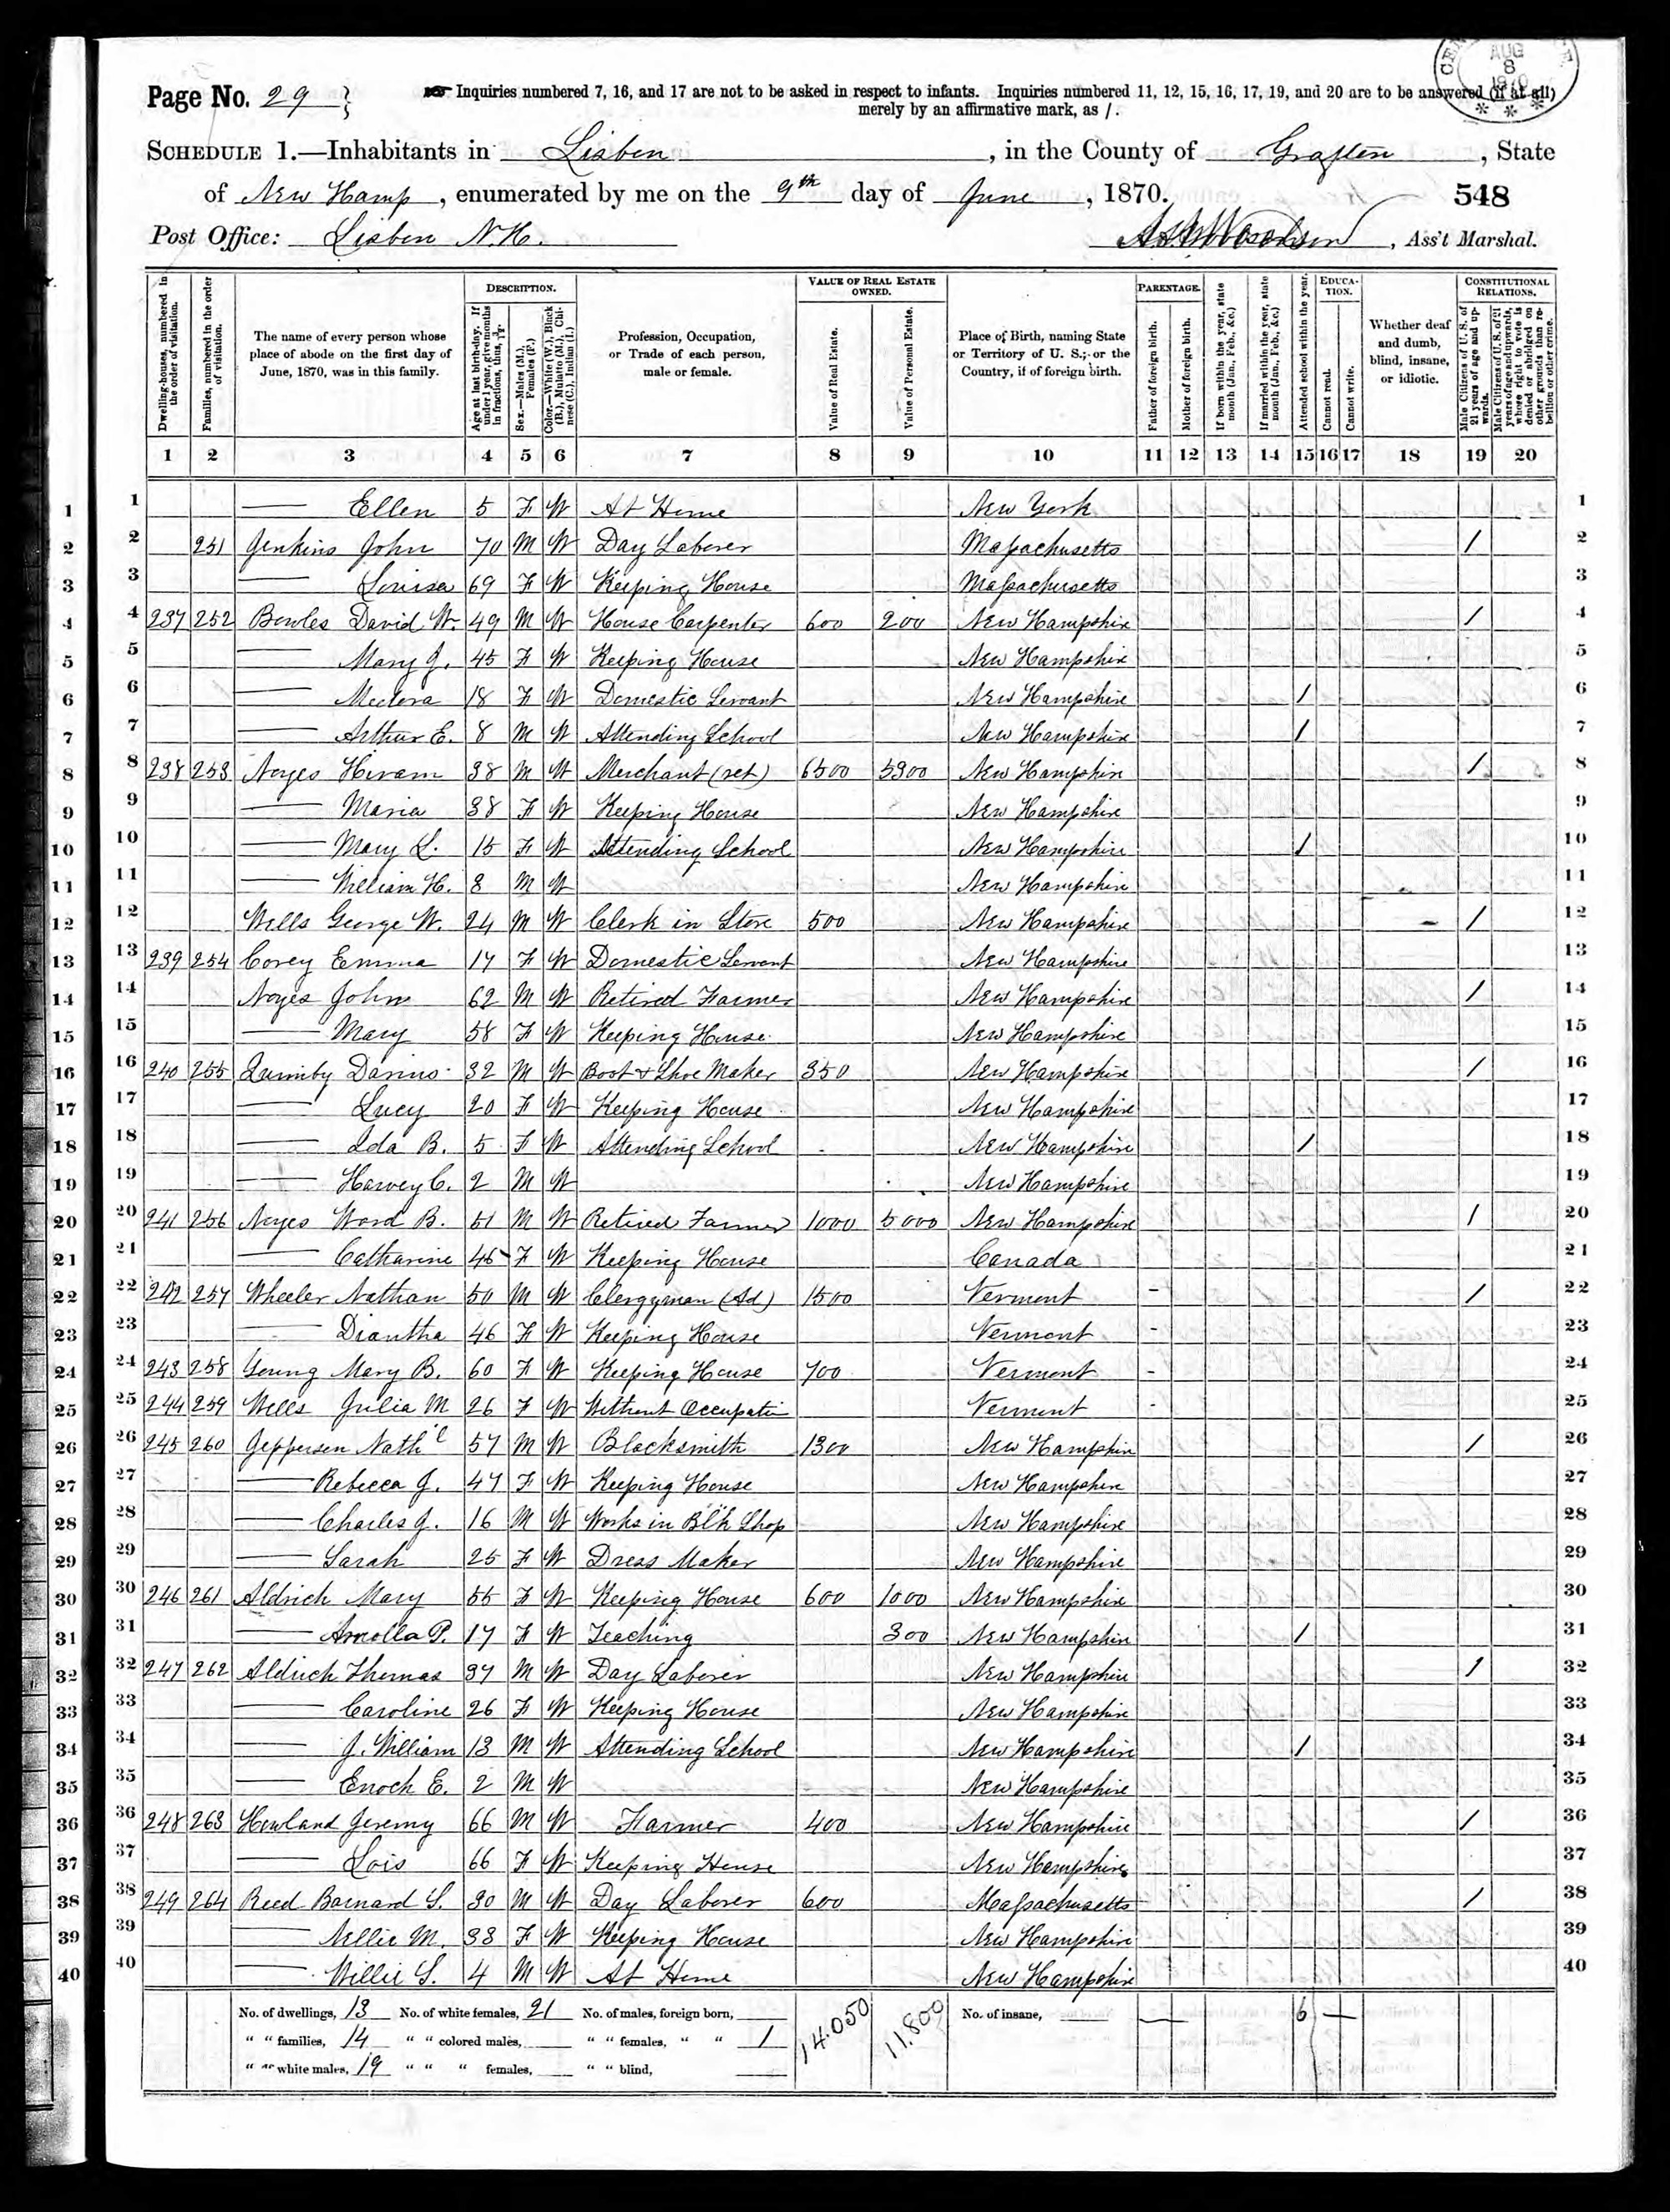 CEN AUG 8 1870
Page No. 29 Inquiries numbered 7, 16, and 17 are not to be asked in respect to infants. Inquiries numbered 11, 12, 15, 16, 17, 19, and 20 are to be answered (if at all)
merely by an affirmative mark, as /.
SCHEDULE 1.—Inhabitants in Lisbon, in the County of Grafton, State
of New Hamp, enumerated by me on the 9th day of June, 1870. 548
Post Office: Lisbon N.H. , Ass't Marshal.
Dwelling-houses, numbered in the order of visitation.
Families, numbered in the order of visitation.
The name of every person whose place of abode on the first day of June, 1870, was in this family.
DESCRIPTION.
Age at last birth-day. If under 1 year, give months in fractions, thus, 3/12
Sex.—Males (M.), Females (F.)
Color.—White (W.), Black (B.), Mulatto (M.), Chinese (C.), Indian (I.)
Profession, Occupation, or Trade of each person, male or female.
VALUE OF REAL ESTATE OWNED.
Value of Real Estate.
Value of Personal Estate.
Place of Birth, naming State or Territory of U. S.; or the Country, if of foreign birth.
PARENTAGE.
Father of foreign birth.
Mother of foreign birth.
If born within the year, state month (Jan., Feb., &c.)
If married within the year, state month (Jan., Feb., &c.)
Attended school within the year.
EDUCATION.
Cannot read.
Cannot write.
Whether deaf and dumb, blind, insane, or idiotic.
CONSTITUTIONAL RELATIONS.
Male Citizens of U. S. of 21 years of age and upwards.
Male Citizens of U. S. of 21 years of age and upwards, whose right to vote is denied or abridged on other grounds than rebellion or other crime.
1 2 3 4 5 6 7 8 9 10 11 12 13 14 15 16 17 18 19 20
1 1 — Ellen 5 F W At Home New York 1
2 2 251 Jenkins John 70 M W Day Laborer Massachusetts / 2
3 3 — Louisa 69 F W Keeping House Massachusetts 3
4 4 237 252 Bowles David W. 49 M W House Carpenter 600 200 New Hampshire / 4
5 5 — Mary J. 45 F W Keeping House New Hampshire 5
6 6 — Medora 18 F W Domestic Servant New Hampshire / 6
7 7 — Arthur E. 8 M W Attending School New Hampshire / 7
8 8 238 253 Noyes Hiram 38 M W Merchant (ret) 6500 5300 New Hampshire / 8
9 9 — Maria 38 F W Keeping House New Hampshire 9
10 10 — Mary L. 15 F W Attending School New Hampshire / 10
11 11 — William H. 8 M W New Hampshire 11
12 12 Wells George W. 24 M W Clerk in Store 500 New Hampshire / 12
13 13 239 254 Corey Emma 17 F W Domestic Servant New Hampshire 13
14 14 Noyes John 62 M W Retired Farmer New Hampshire / 14
15 15 — Mary 58 F W Keeping House New Hampshire 15
16 16 240 255 Quimby Darius 32 M W Boot & Shoe Maker 350 New Hampshire / 16
17 17 — Lucy 20 F W Keeping House New Hampshire 17
18 18 — Ida B. 5 F W Attending School New Hampshire / 18
19 19 — Harvey C. 2 M W New Hampshire 19
20 20 241 256 Noyes Ward B. 51 M W Retired Farmer 1000 5000 New Hampshire / 20
21 21 — Catharine 46 F W Keeping House Canada 21
22 22 242 257 Wheeler Nathan 50 M W Clergyman (Ad) 1500 Vermont - / 22
23 23 — Diantha 46 F W Keeping House Vermont - 23
24 24 243 258 Young Mary B. 60 F W Keeping House 700 Vermont - 24
25 25 244 259 Wells Julia M 26 F W Without Occupatin Vermont - 25
26 26 245 260 Jepperson Nath'l 57 M W Blacksmith 1300 New Hampshire / 26
27 27 — Rebecca J. 47 F W Keeping House New Hampshire 27
28 28 — Charles J. 16 M W Works in Blk Shop New Hampshire 28
29 29 — Sarah 25 F W Dress Maker New Hampshire 29
30 30 246 261 Aldrich Mary 55 F W Keeping House 600 1000 New Hampshire 30
31 31 — P. 17 F W Teaching 300 New Hampshire / 31
32 32 247 262 Aldrich Thomas 37 M W Day Laborer New Hampshire / 32
33 33 — Caroline 26 F W Keeping House New Hampshire 33
34 34 — J. William 13 M W Attending School New Hampshire / 34
35 35 — Enoch E. 2 M W New Hampshire 35
36 36 248 263 Howland Jeremy 66 M W Farmer 400 New Hampshire / 36
37 37 — Lois 66 F W Keeping House New Hampshire 37
38 38 249 264 Reed Barnard S. 30 M W Day Laborer 600 Massachusetts / 38
39 39 — Nellie M. 33 F W Keeping House New Hampshire 39
40 40 — Willie S. 4 M W At Home New Hampshire 40
No. of dwellings, 13 No. of white females, 21 No. of males, foreign born, 14.050 11.800 No. of insane, — 6 —
" " families, 14 " " colored males, " " females, " " 1
" " white males, 19 " " " females, " " blind,